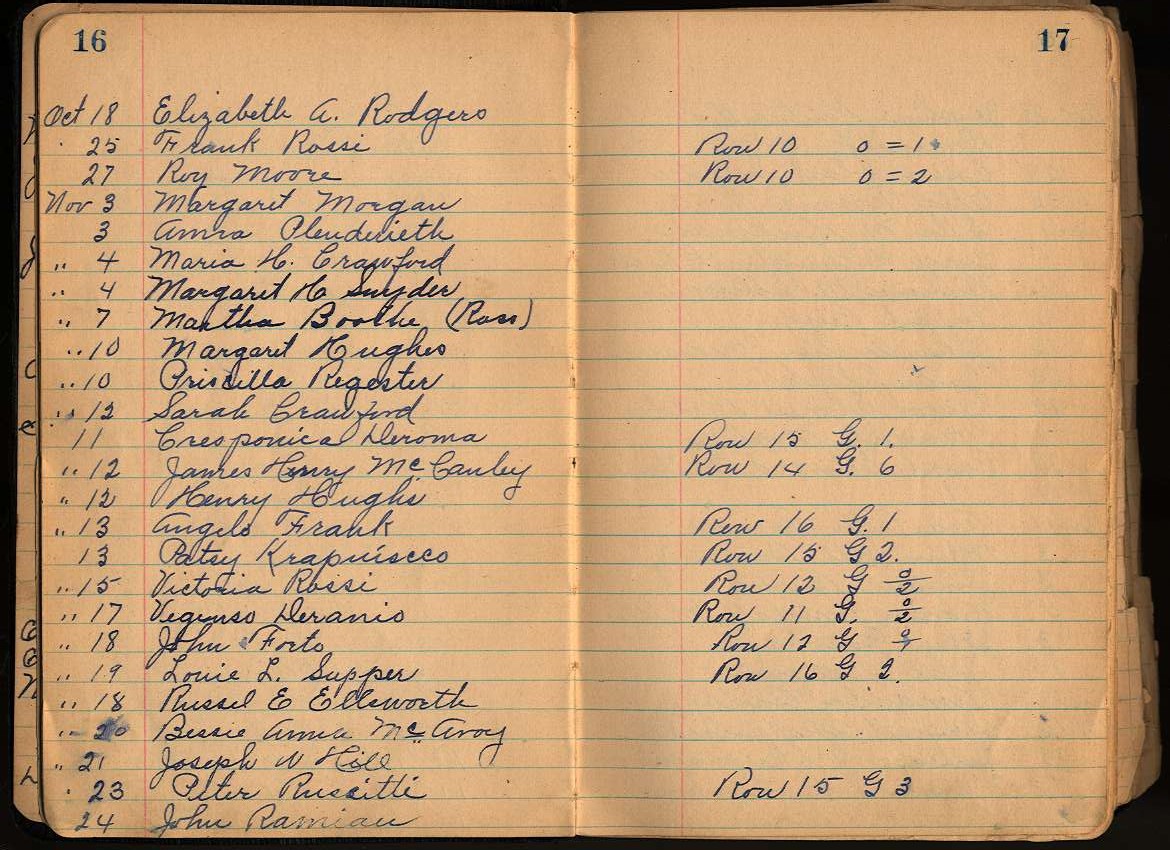 16
17
Oct 18 Elizabeth A. Rodgers
" 25 Frank Rossi Row 10 0 = 1
27 Roy Moore Row 10 0 = 2
Nov 3 Margaret Morgan
3 Anna Plenderieth
" 4 Maria H. Crawford
" 4 Margaret H Snyder
" 7 Martha Boothe (Ross)
" 10 Margaret Hughes
" 10 Priscilla Regester
" 12 Sarah Crawford
11 Cresponica Deroma Row 15 G. 1.
" 12 James Henry McCauley Row 14 G. 6
" 12 Henry Hughs
" 13 Angelo Frank Row 16 G. 1
13 Patsy Krapuiscco Row 15 G 2.
" 15 Victoria Rossi Row 12 G 0/2
" 17 Vegenso Deranio Row 11 G. 0/2
" 18 John Forto Row 12 G
" 19 Louie L. Supper Row 16 G 2.
" 18 Russel E Ellsworth
" 20 Bessie Anna McAvoy
" 21 Joseph N Hill
" 23 Peter Russitti Row 15 G 3
24 John Ramian